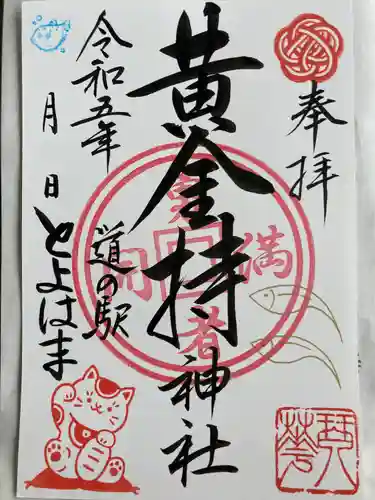 奉拝
黄金持神社
道の駅
とよはま
令和五年
月 日
満
者